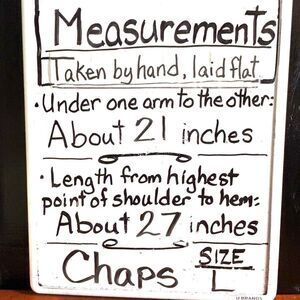 Measurements
Taken by hand, laid flat
• Under one arm to the other:
About 21 inches
• Length from highest
point of shoulder to hem:
About 27 inches
Chaps SIZE L
U BRANDS